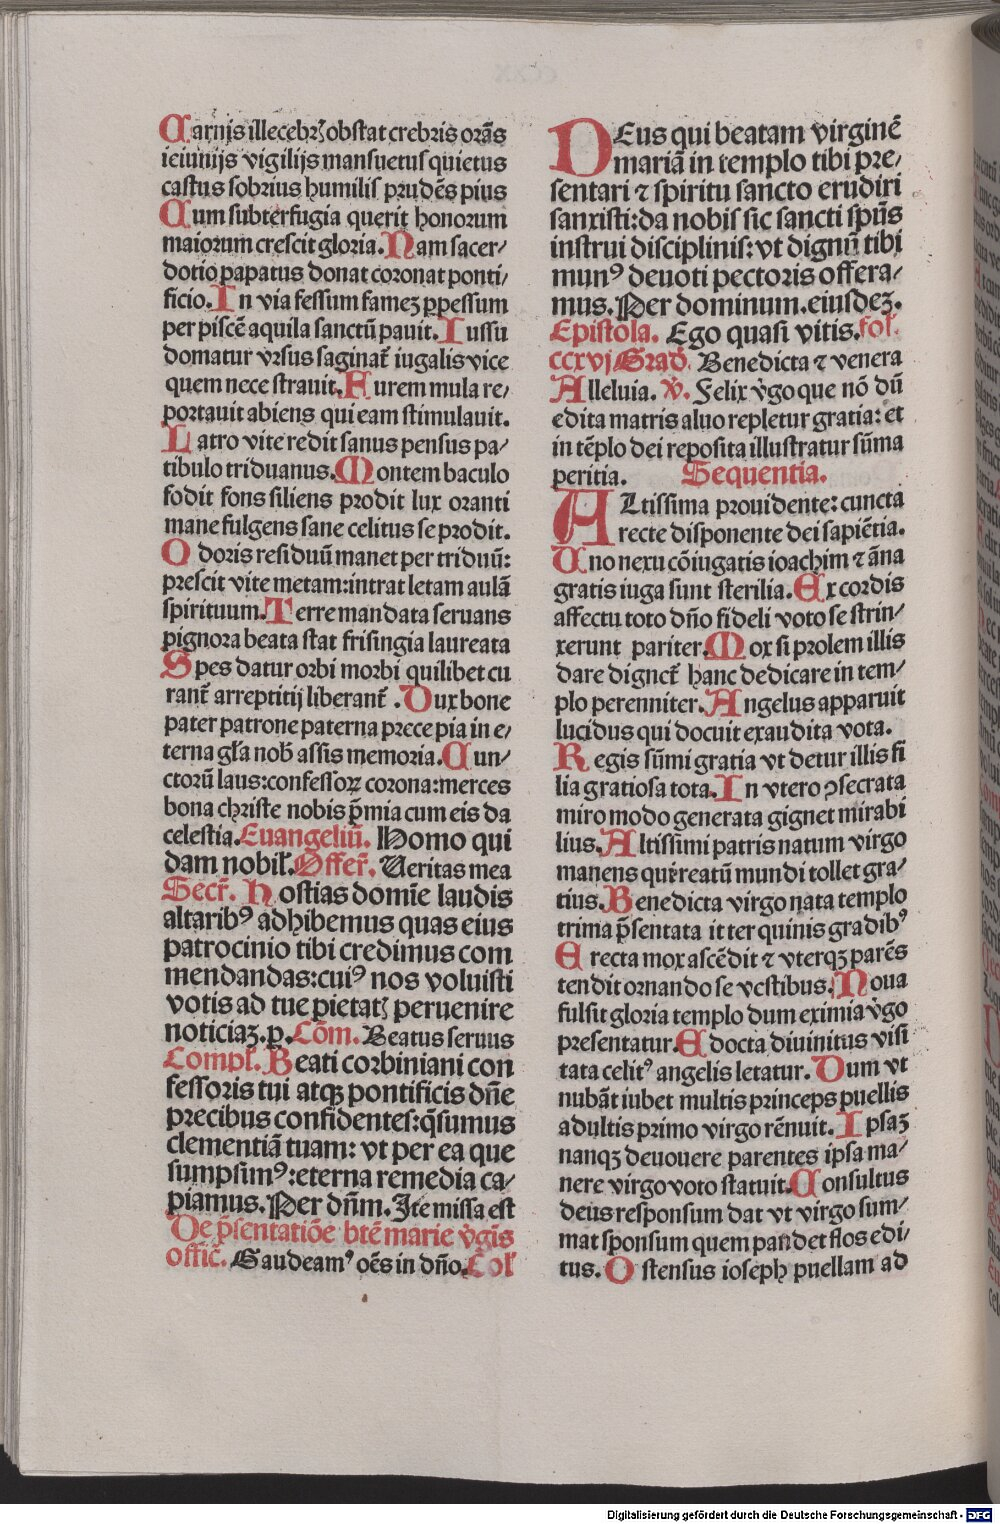 Carnis illecebrꝭ obstat crebris orās
ieiunijs vigilijs mansuetus quietus
castus sobrius humilis prudēs pius
Cum subterfugia querit honorum
maiorum crescit gloria. Nam sacer/
dotio papatus donat coronat ponti/
ficio. In via fessum famez ꝑpessum
per piscē aquila sanctū pauit. Iussu
domatur vrsus saginat᷑ iugalis vice
quem nece strauit. Furem mula re/
portauit abiens qui eam stimulauit.
Latro vite redit sanus pensus pa/
tibulo triduanus. Montem baculo
fodit fons siliens prodit lux oranti
mane fulgens sane celitus se prodit.
Odoris residuū manet per triduū:
prescit vite metam: intrat letam aulā
spirituum. Terre mandata seruans
pignora beata stat frisingia laureata
Spes datur orbi morbi quilibet cu
rant᷑ arreptitij liberant᷑. Dux bone
pater patrone paterna prece pia in e/
terna gl̕a nob̕ assis memoria. Cun/
ctorū laus: confessoꝝ corona: merces
bona christe nobis p̄mia cum eis da
celestia. Euangeliū. Homo qui
dam nobil̕. Offer᷑. Ueritas mea
Secr᷑. Hostias domīe laudis
altarib⁹ adhibemus quas eius
patrocinio tibi credimus com
mendandas: cui⁹ nos voluisti
votis ad tue pietatꝭ peruenire
noticiaz. ꝑ. Cōm. Beatus seruus
Compl̕. Beati corbiniani con
fessoris tui atqꝫ pontificis dn̄e
precibus confidentes: q̄sumus
clementiā tuam: vt per ea que
sumpsim⁹: eterna remedia ca/
piamus. Per dn̄m. Ite missa est
De p̄sentatiōe btē marie v̇gīs
offic̄. Gaudeam⁹ oēs in dn̄o. Col̕
DEus qui beatam virginē
mariā in templo tibi pre/
sentari ⁊ spiritu sancto erudiri
sanxisti: da nobis sic sancti spūs
instrui disciplinis: vt dignū tibi
mun⁹ deuoti pectoris offera/
mus. Per dominum. eiusdez.
Epistola. Ego quasi vitis. fol̕.
ccxvj Grad̕. Benedicta ⁊ venera
Alleluia. v̇. Felix v̇go que nō dū
edita matris aluo repletur gratia: et
in tēplo dei reposita illustratur sūma
peritia. Sequentia.
ALtissima prouidente: cuncta
recte disponente dei sapiētia.
Uno nexu cōiugatis ioachim ⁊ āna
gratis iuga sunt sterilia. Ex cordis
affectu toto dn̄o fideli voto se strin/
xerunt pariter. Mox si prolem illis
dare dignet᷑ hanc dedicare in tem/
plo perenniter. Angelus apparuit
lucidus qui docuit exaudita vota.
Regis sūmi gratia vt detur illis fi
lia gratiosa tota. In vtero ꝯsecrata
miro modo generata gignet mirabi
lius. Altissimi patris natum virgo
manens que reatū mundi tollet gra/
tius. Benedicta virgo nata templo
trima p̄sentata it ter quinis gradib⁹
Erecta mox ascēdit ⁊ vterqꝫ parēs
tendit ornando se vestibus. Noua
fulsit gloria templo dum eximia v̇go
presentatur. Edocta diuinitus visi
tata celit⁹ angelis letatur. Dum vt
nubāt iubet multis princeps puellis
adultis primo virgo rēnuit. Ipsaꝫ
nanqꝫ deuouere parentes ipsa ma/
nere virgo voto statuit. Consultus
deus responsum dat vt virgo sum/
mat sponsum quem pandet flos edi/
tus. Ostensus ioseph puellam ad
Digitalisierung gefördert durch die Deutsche Forschungsgemeinschaft - DFG